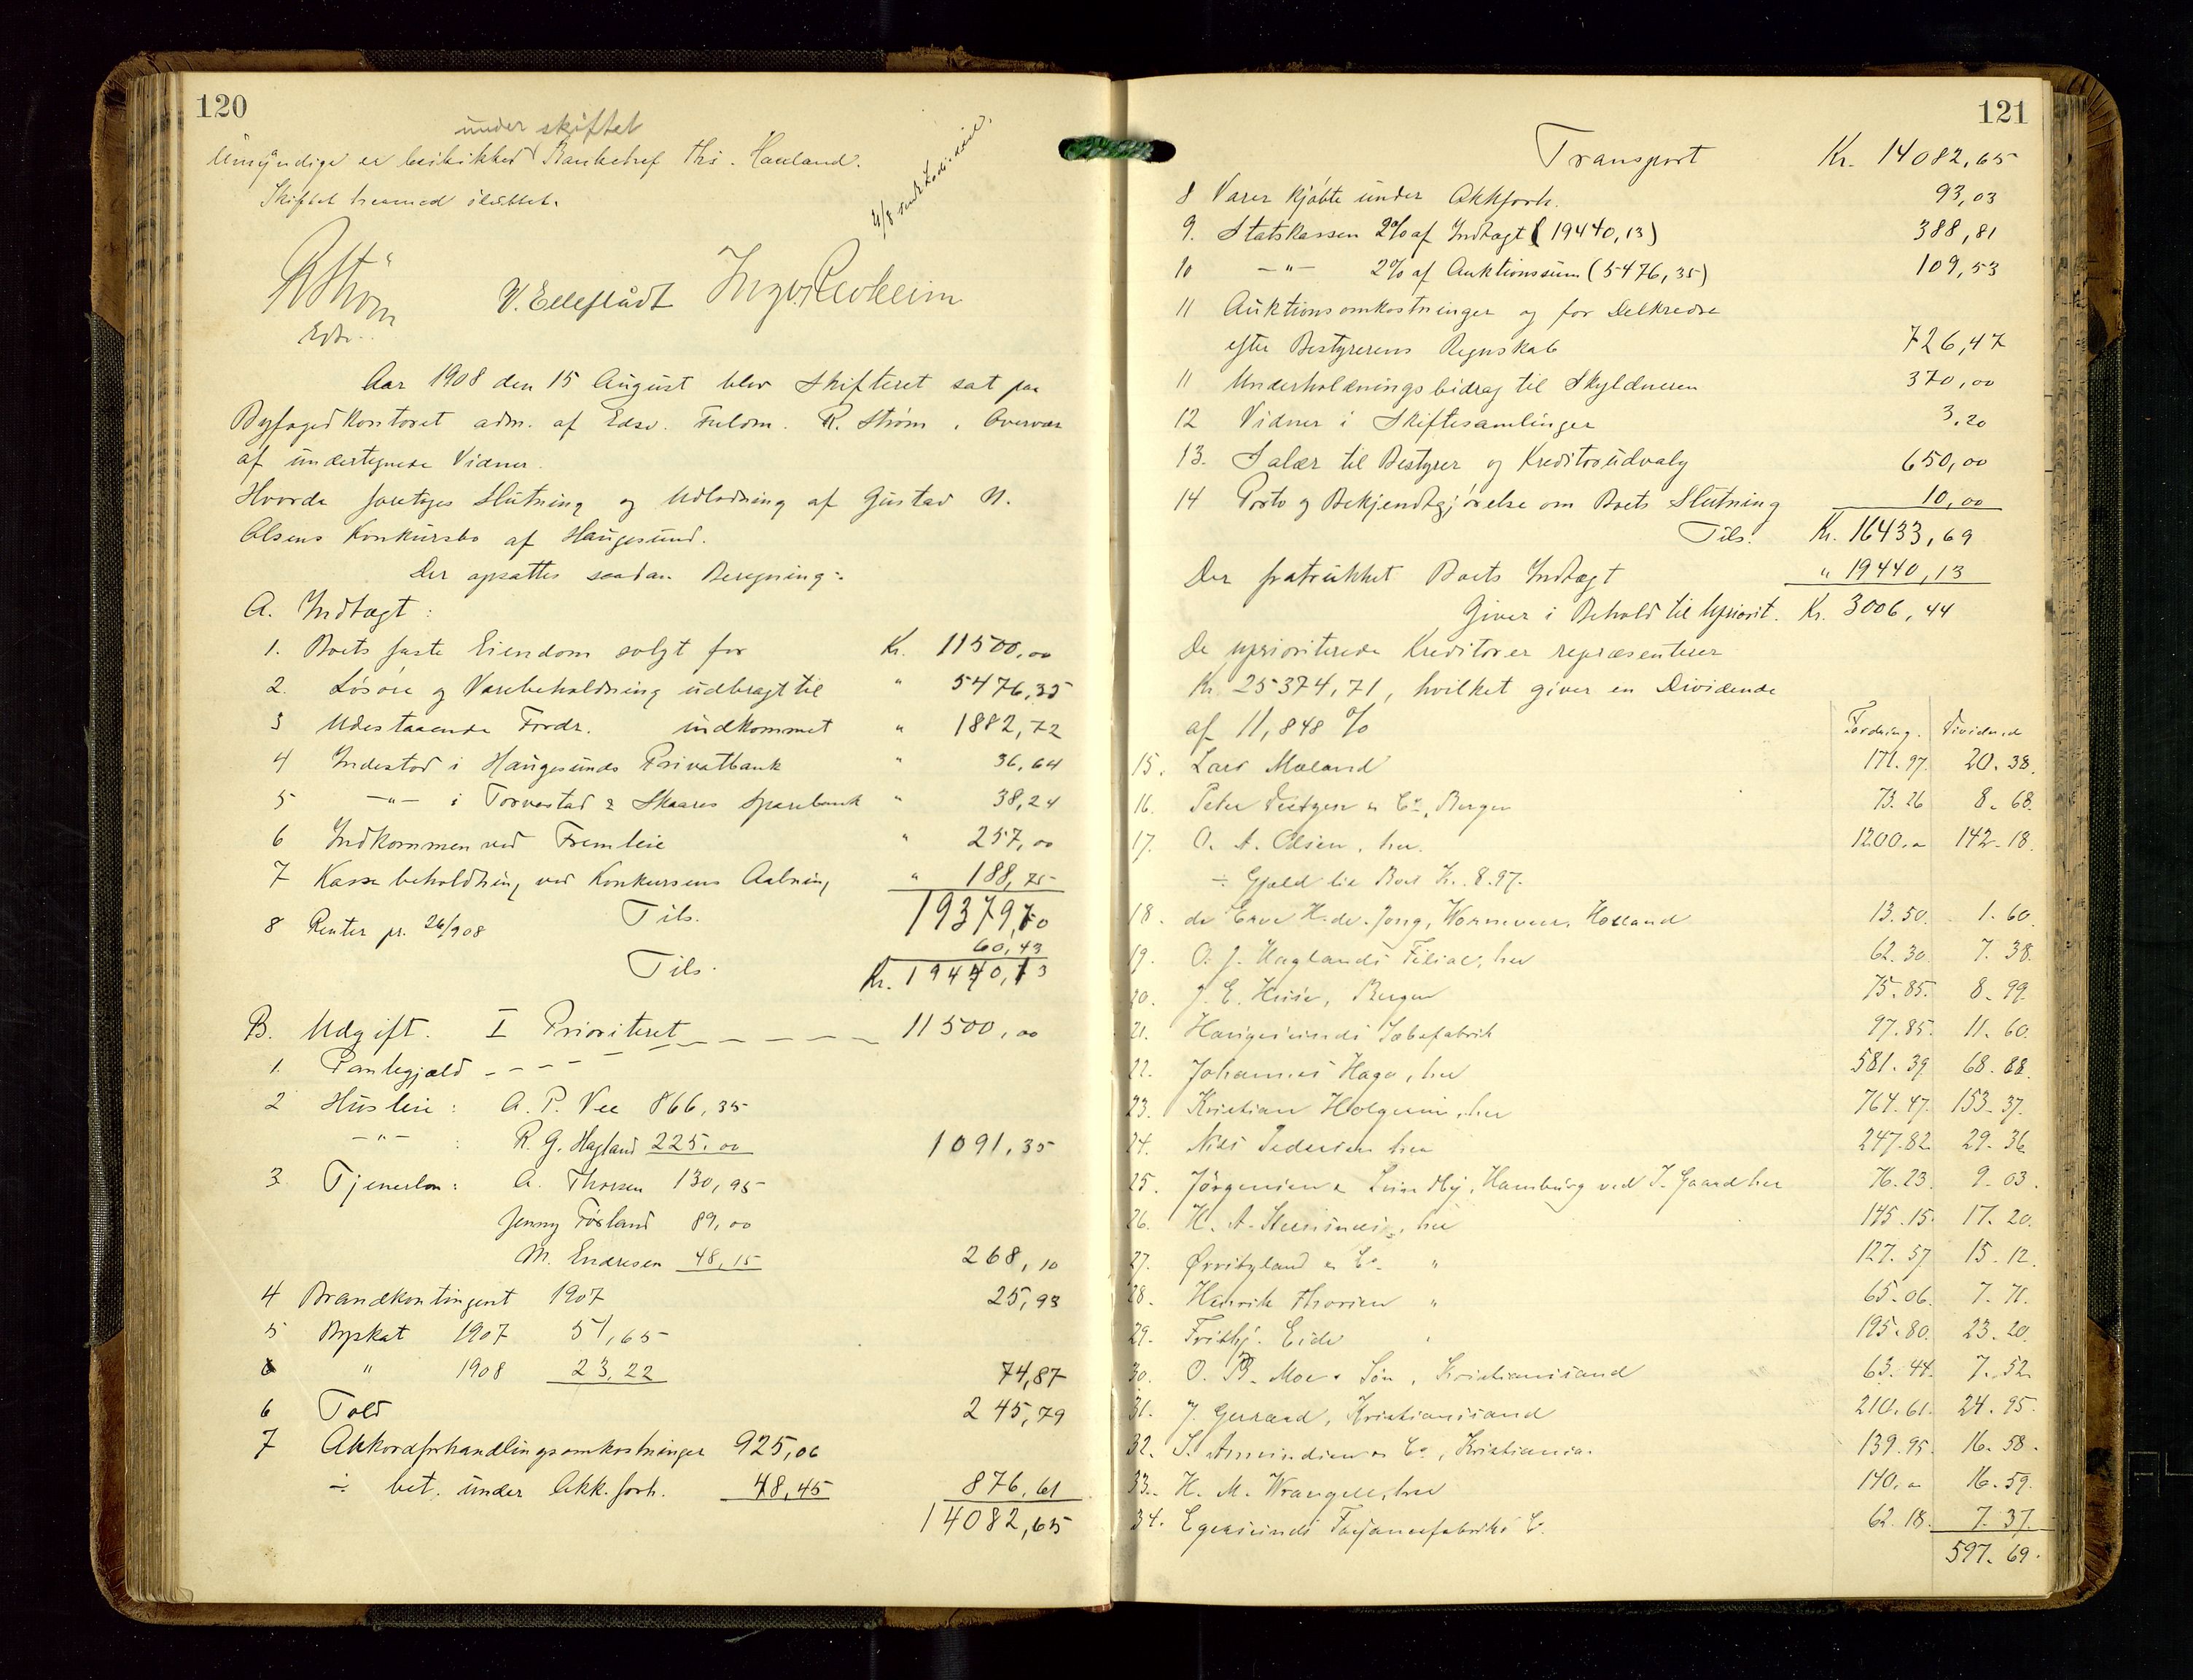 120
under skiftet
Umyndige er beskikket Bankchef Ths. Haaland.
Skiftet hermed sluttet.
R Strøm
Edsv.
V. Elleflådt
Aar 1908 den 15 August blev Skifteret sat paa
Byfogedkontoret adm. af Edsv. Fuldm. R. Strøm i Overvær
af undertegnede Vidner.
Hvorda foretoges Slutning og Udlodning af Gustav N.
Olsens Konkursbo af Haugesund.
Der opsattes saadan Beregning:
A. Indtægt:
1. Boets faste Eiendom solgt for Kr. 11500,00
2. Løsøre og Varebeholdning udbragt til " 5476,35
3 Udestaaende Fordr. indkommet " 1882,72
4 Indestod i Haugesunds Privatbank " 36,64
5 -"- i Torvastad & Skaares Sparebank " 38,24
6 Indkommen ved Fremleie " 257,00
7 Kassabeholdning ved Konkursens Aabning " 188,75
Tils. 19379,70
8 Renter pr. 26/908 60,43
Tils. Kr. 19440,13
B. Udgift. I Prioriteret 11500,00
1. Pantegjæld
2 Husleie: A. P. Vee 866,35
-"- : R. G. Hagland 225,00 1091,35
3. Tjenerløn: A. Thorsen 130,95
Jenny Førland 89,00
M. Endresen 48,15 268,10
4 Brandkontingent 1907 25,93
5 Byskat 1907 51,65
" 1908 23,22 74,87
6 Told 245,79
7 Akkordforhandlingsomkostninger 925,06
÷ bet. under Akk.forh. 48,45 876,61
14082,65
121
Transport Kr. 14082,65
8 Varer kjøbte under Akkforh. 93,03
9. Statskassen 2% af Indtægt (19440,13) 388,81
10 -"- 2% af Auktionssum (5476,35) 109,53
11 Auktionsomkostninger og for Delkredre
efter Bestyrerens Regnskab 726,47
11 Underholdningsbidrag til Skyldneren 370,00
12 Vidner i Skiftesamlinger 3.20
13. Salær til Bestyrer og Kreditorudvalg 650,00
14 Porto og Bekjendtgjørelse om Boets Slutning 10,00
Tils. Kr. 16433,69
Der fratrukket Boets Indtægt " 19440,13
Giver i Behold til Upriorit. Kr. 3006,44
De uprioriterede Kreditorer repræsenterer
Kr. 25374,71, hvilket giver en Dividende
af 11,848 %
Fordring. Dividend
15. Lars Mæland 171.97 20.38.
16. Peter & Co, Bergen 73.26 8.68.
17. O. A. Olsen, her. 1200.- 142.18.
÷ Gjæld til Boet Kr. 8.97.
18. de Erve H. de Jong, Wormerveer, Holland 13.50. 1.60.
19. O. J. Haglands Filial, her 62.30. 7.38.
20. J. E. Huse, Bergen 75.85. 8.99.
21. Haugesunds Sæbefabrik 97.85. 11.60.
22. Johannes Haga, her 581.39. 68.88.
23. Kristian Holgersen, her 764.47. 153.37.
24. Nils Pedersen her 247.82 29.36
25. Jørgensen & Hamburg ved J. Gaard her 76.23. 9.03.
26. H. A. her 145.15. 17.20.
27. Ørvitzland & Co. " 127.57 15.12.
28. Henrik Thorsen " 65.06. 7.71.
29. Frithj. Eide " 195.80. 23.20.
30. O. B. Moe & Søn, Kristianssand 63.44. 7.52.
31. J. Gerrard, Kristianssand 210.61. 24.95.
32. S. Amundsen & Co, Kristiania. 139.95. 16.58.
33. H. M. Wrangell, her 140.- 16.59.
34. Egersunds Fayancefabriks Co. 62.18. 7.37.
597.69.